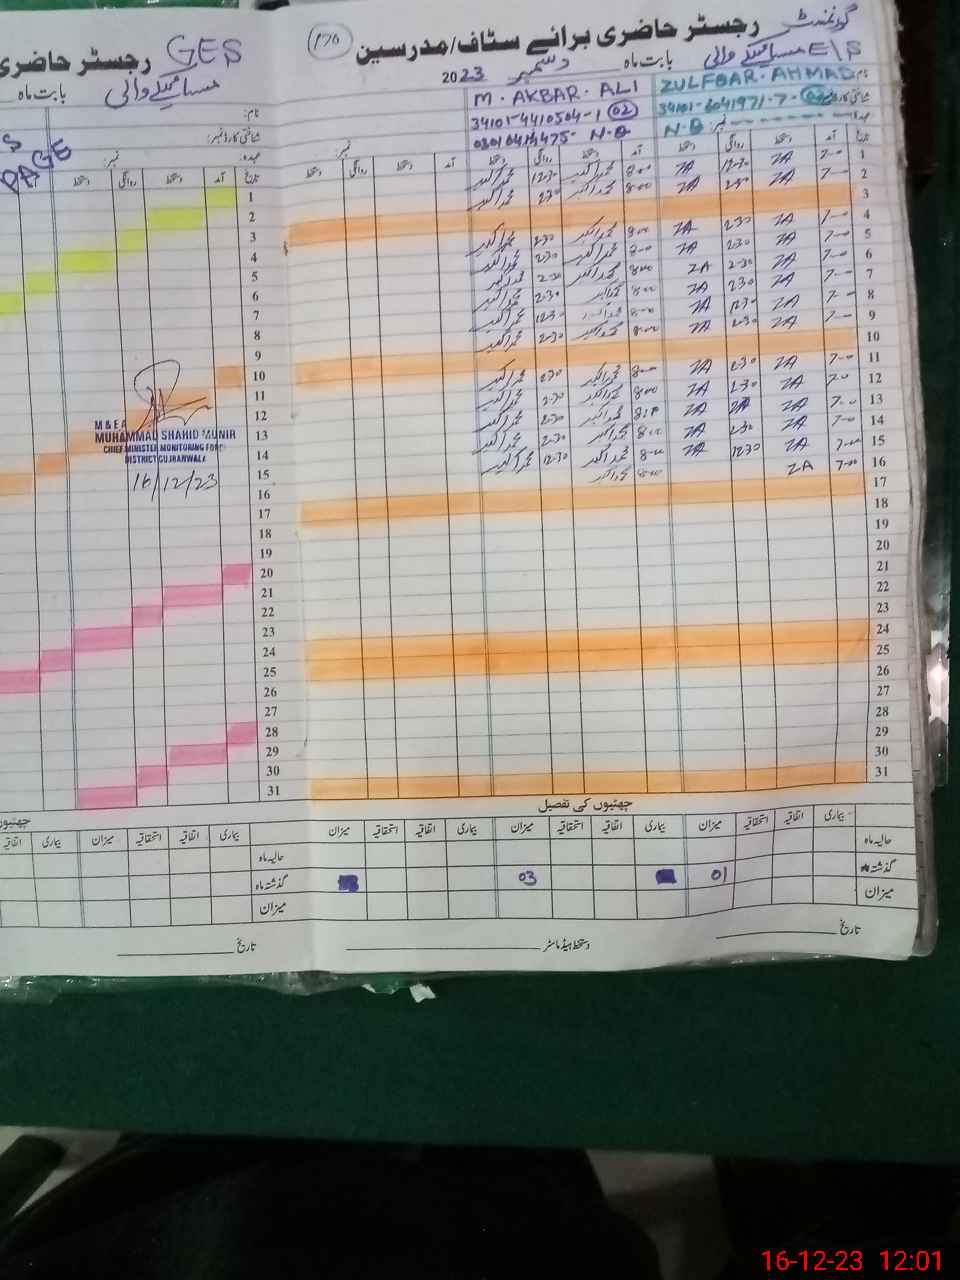 گورنمنٹ
رجسٹر حاضری برائے سٹاف/مدرسین
E/S
بابت ماہ دسمبر 2023
ZULFQAR. AHMAD
34101-6041971-7-
N.Q
M. AKBAR. ALI
34101-4410504-1 02
N.Q
تاریخ آمد دستخط روانگی دستخط آمد دستخط روانگی دستخط آمد دستخط روانگی دستخط
1 7-00 ZA 12-30 ZA 8-00 محمد اکبر 12-30 محمد اکبر
2 7-00 ZA 2-30 ZA 8-00 محمد اکبر 2-30 محمد اکبر
3
4 7-00 ZA 2-30 ZA 8-00 محمد اکبر 2-30 محمد اکبر
5 7-00 ZA 2-30 ZA 8-00 محمد اکبر 2-30 محمد اکبر
6 7-00 ZA 2-30 ZA 8-00 محمد اکبر 2-30 محمد اکبر
7 7-00 ZA 2-30 ZA 8-00 محمد اکبر 2-30 محمد اکبر
8 7-00 ZA 12-30 ZA 8-00 محمد اکبر 12-30 محمد اکبر
9 7-00 ZA 2-30 ZA 8-00 محمد اکبر 2-30 محمد اکبر
10
11 7-00 ZA 2-30 ZA 8-00 محمد اکبر 2-30 محمد اکبر
12 7-00 ZA 2-30 ZA 8-00 محمد اکبر 2-30 محمد اکبر
13 7-00 ZA ZA محمد اکبر 2-30 محمد اکبر
14 7-00 ZA 2-30 ZA 8-00 محمد اکبر 2-30 محمد اکبر
15 7-00 ZA 12-30 ZA 8-00 محمد اکبر 12-30 محمد اکبر
16 7-00 ZA 8-00 محمد اکبر
17
18
19
20
21
22
23
24
25
26
27
28
29
30
31
چھٹیوں کی تفصیل
بیماری اتفاقیہ استحقاقیہ میزان بیماری اتفاقیہ استحقاقیہ میزان بیماری اتفاقیہ استحقاقیہ میزان
حالیہ ماہ
گذشتہ ماہ 01 03
میزان
تاریخ
دستخط ہیڈ ماسٹر
رجسٹر حاضری
GES
بابت ماہ
نام:
شناختی کارڈ نمبر:
عہدہ: نمبر:
PAGE
تاریخ آمد دستخط روانگی دستخط
1
2
3
4
5
6
7
8
9
10
11
12
13
14
15
16
17
18
19
20
21
22
23
24
25
26
27
28
29
30
31
M & E A
MUHAMMAD SHAHID MUNIR
CHIEF MINISTER MONITORING FORCE
DISTRICT GUJRANWALA
16/12/23
بیماری اتفاقیہ استحقاقیہ میزان بیماری اتفاقیہ
حالیہ ماہ
گذشتہ ماہ
میزان
تاریخ
16-12-23 12:01